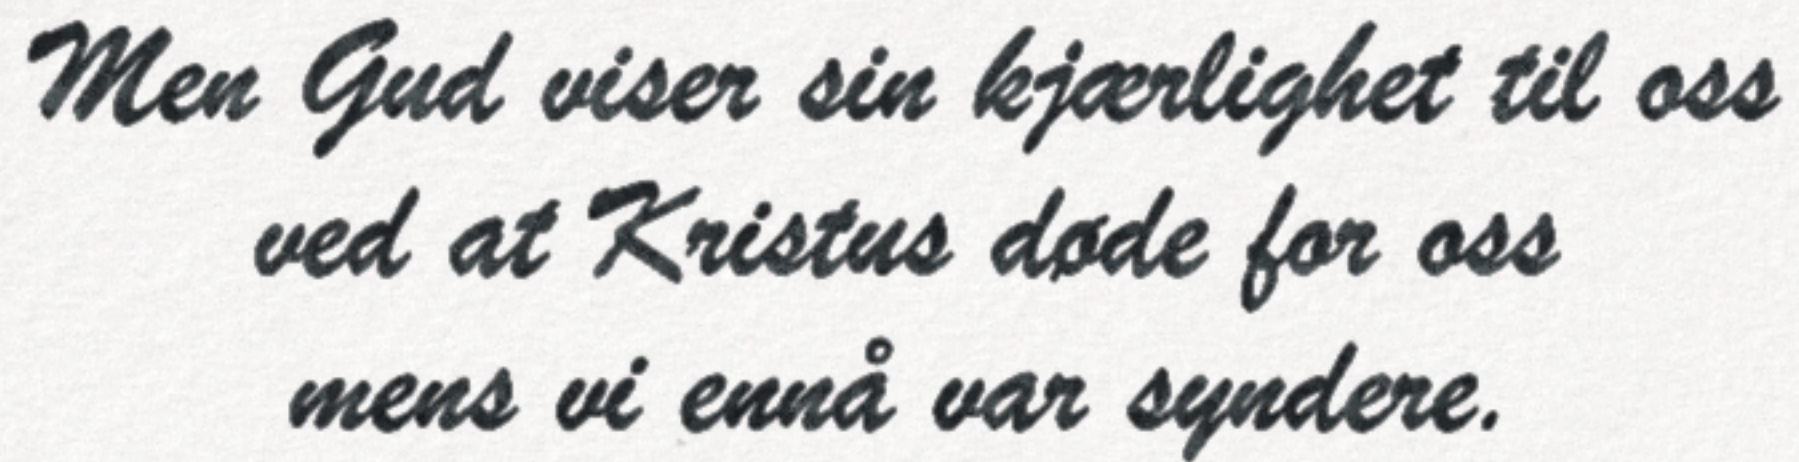 Men Gud viser sin kjærlighet til oss
ved at Kristus døde for oss
mens vi ennå var syndere.